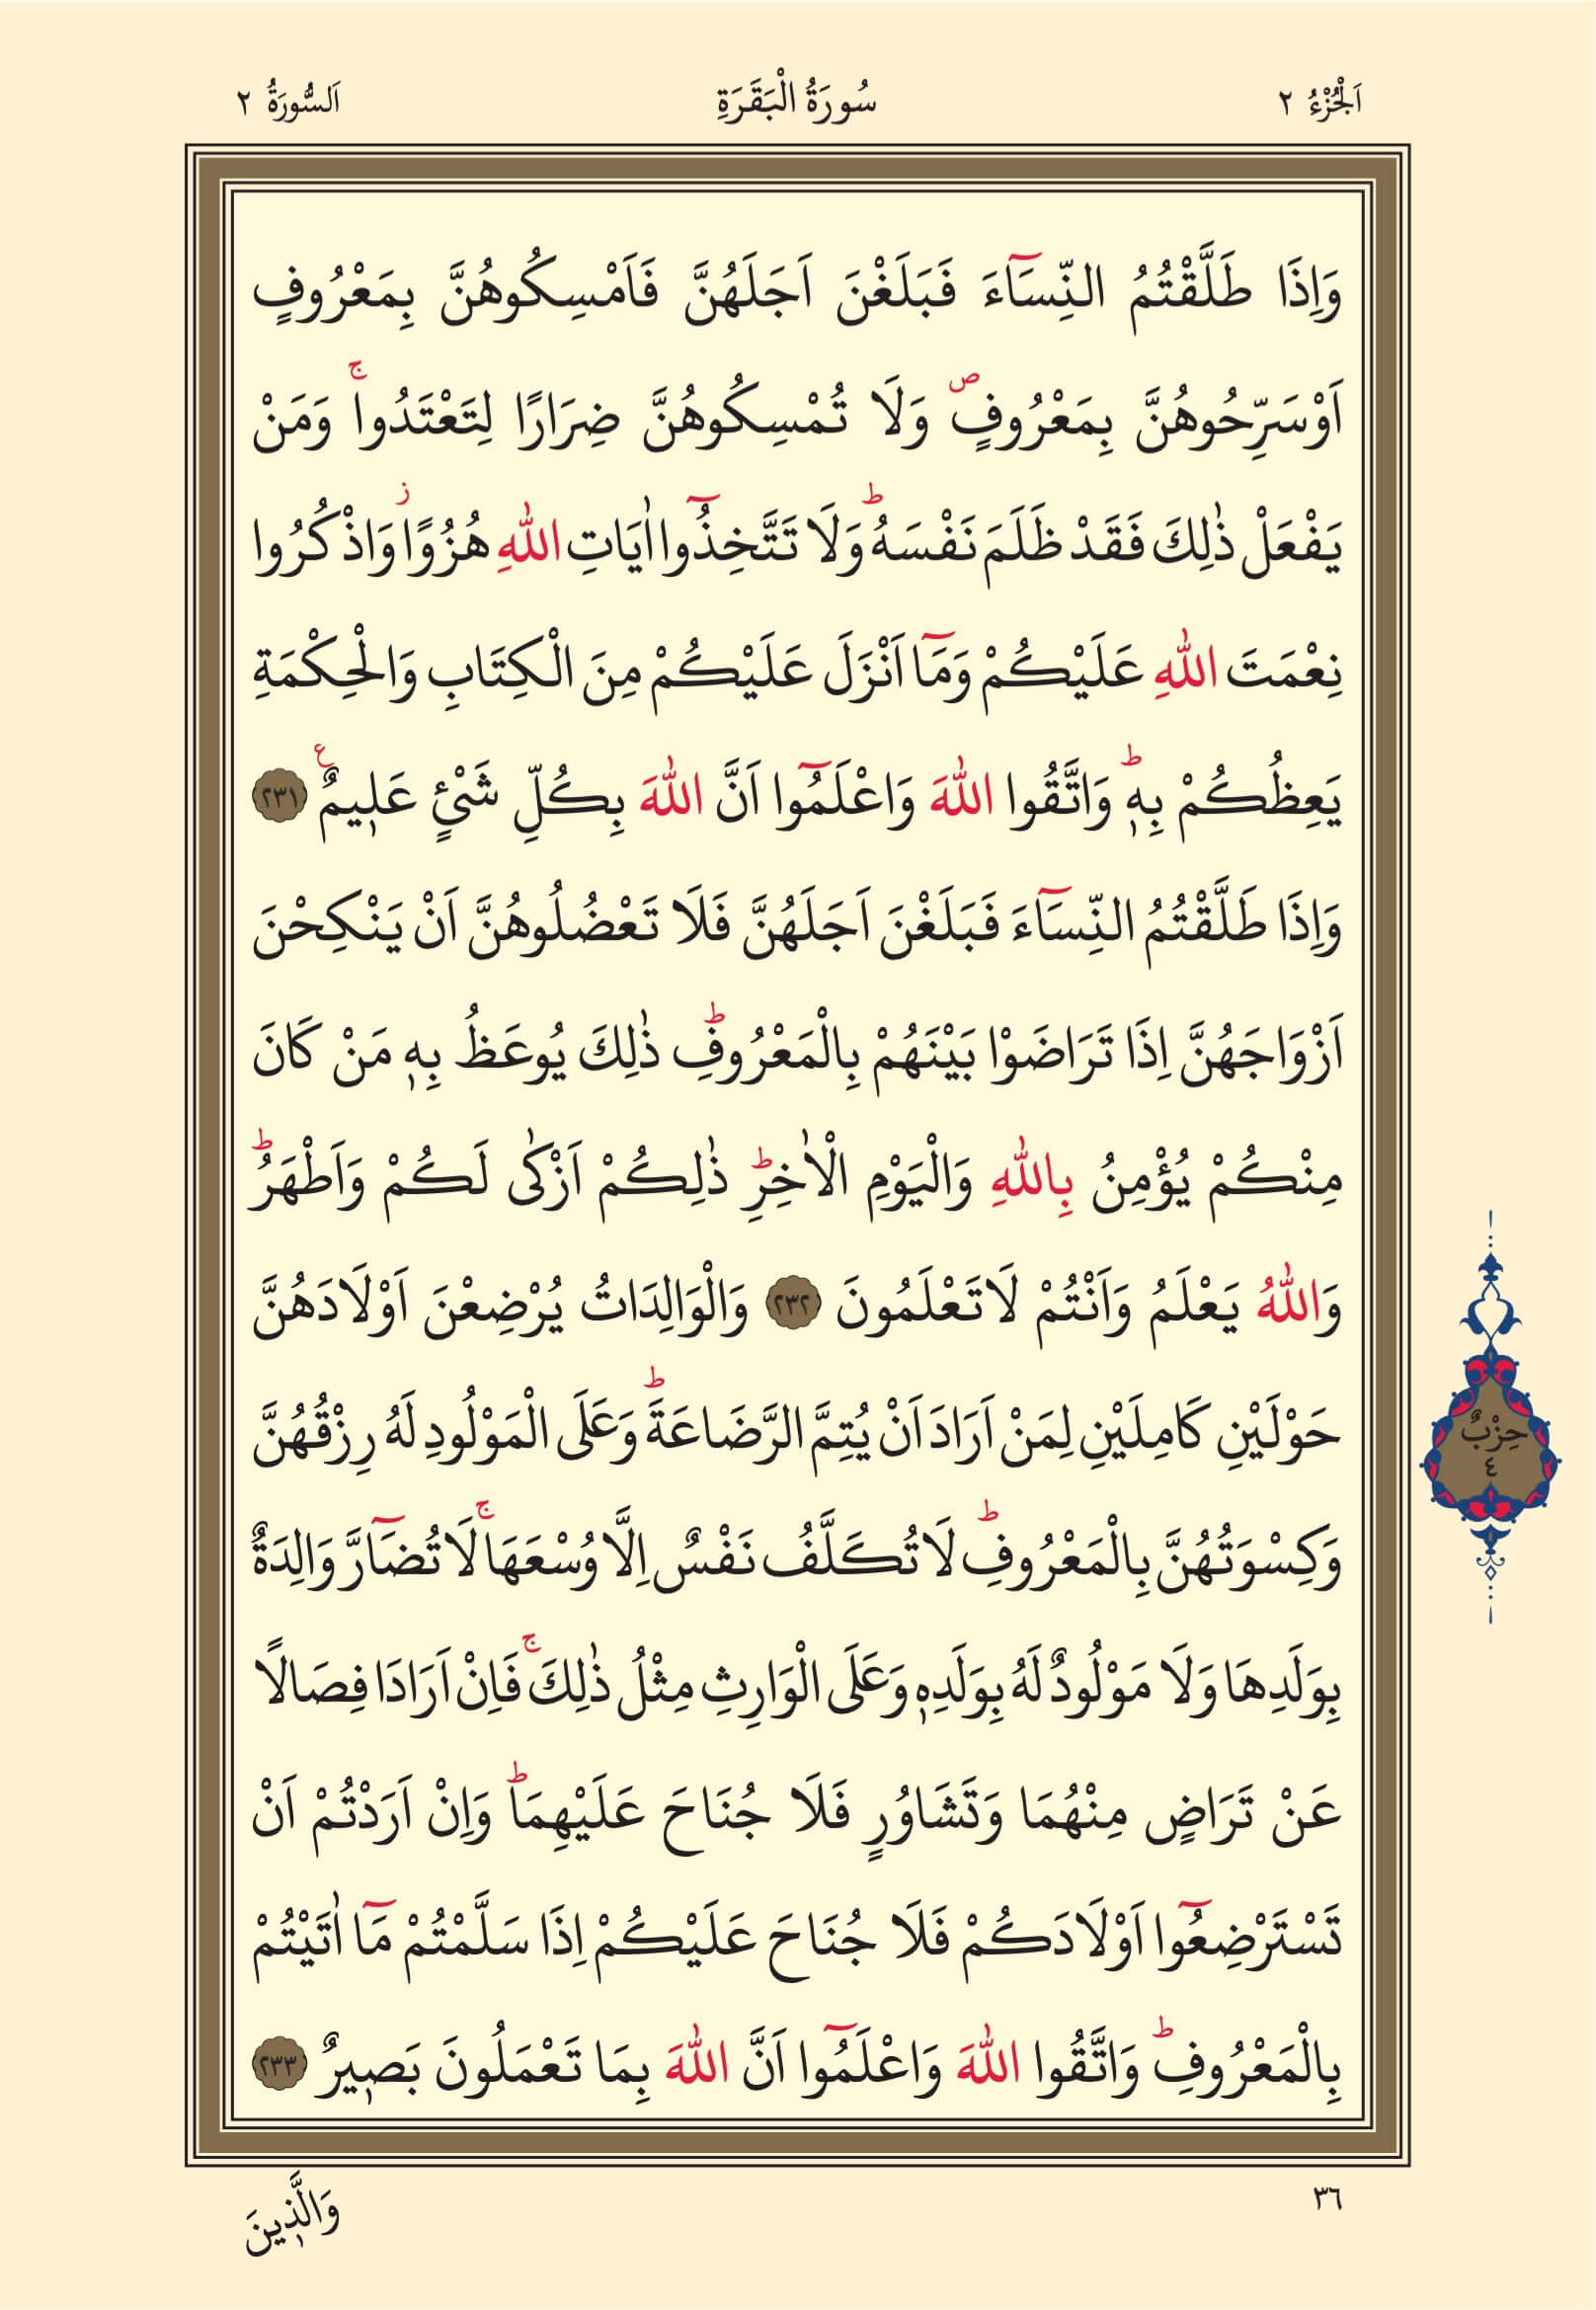 اَلْجُزْءُ ٢
سُورَةُ الْبَقَرَةِ
اَلسُّورَةُ ٢
وَاِذَا طَلَّقْتُمُ النِّسَٓاءَ فَبَلَغْنَ اَجَلَهُنَّ فَاَمْسِكُوهُنَّ بِمَعْرُوفٍ
اَوْ سَرِّحُوهُنَّ بِمَعْرُوفٍۖ وَلَا تُمْسِكُوهُنَّ ضِرَارًا لِتَعْتَدُواۚ وَمَنْ
يَفْعَلْ ذٰلِكَ فَقَدْ ظَلَمَ نَفْسَهُۜ وَلَا تَتَّخِذُٓوا اٰيَاتِ اللّٰهِ هُزُوًاۘ وَاذْكُرُوا
نِعْمَتَ اللّٰهِ عَلَيْكُمْ وَمَٓا اَنْزَلَ عَلَيْكُمْ مِنَ الْكِتَابِ وَالْحِكْمَةِ
يَعِظُكُمْ بِه۪ۜ وَاتَّقُوا اللّٰهَ وَاعْلَمُٓوا اَنَّ اللّٰهَ بِكُلِّ شَيْءٍ عَل۪يمٌ۟ ﴿٢٣١﴾
وَاِذَا طَلَّقْتُمُ النِّسَٓاءَ فَبَلَغْنَ اَجَلَهُنَّ فَلَا تَعْضُلُوهُنَّ اَنْ يَنْكِحْنَ
اَزْوَاجَهُنَّ اِذَا تَرَاضَوْا بَيْنَهُمْ بِالْمَعْرُوفِۜ ذٰلِكَ يُوعَظُ بِه۪ مَنْ كَانَ
مِنْكُمْ يُؤْمِنُ بِاللّٰهِ وَالْيَوْمِ الْاٰخِرِۜ ذٰلِكُمْ اَزْكٰى لَكُمْ وَاَطْهَرُۜ
وَاللّٰهُ يَعْلَمُ وَاَنْتُمْ لَا تَعْلَمُونَ ﴿٢٣٢﴾ وَالْوَالِدَاتُ يُرْضِعْنَ اَوْلَادَهُنَّ
حَوْلَيْنِ كَامِلَيْنِ لِمَنْ اَرَادَ اَنْ يُتِمَّ الرَّضَاعَةَۜ وَعَلَى الْمَوْلُودِ لَهُ رِزْقُهُنَّ
وَكِسْوَتُهُنَّ بِالْمَعْرُوفِۜ لَا تُكَلَّفُ نَفْسٌ اِلَّا وُسْعَهَاۚ لَا تُضَٓارَّ وَالِدَةٌ
بِوَلَدِهَا وَلَا مَوْلُودٌ لَهُ بِوَلَدِه۪ وَعَلَى الْوَارِثِ مِثْلُ ذٰلِكَۚ فَاِنْ اَرَادَا فِصَالًا
عَنْ تَرَاضٍ مِنْهُمَا وَتَشَاوُرٍ فَلَا جُنَاحَ عَلَيْهِمَاۜ وَاِنْ اَرَدْتُمْ اَنْ
تَسْتَرْضِعُٓوا اَوْلَادَكُمْ فَلَا جُنَاحَ عَلَيْكُمْ اِذَا سَلَّمْتُمْ مَٓا اٰتَيْتُمْ
بِالْمَعْرُوفِۜ وَاتَّقُوا اللّٰهَ وَاعْلَمُٓوا اَنَّ اللّٰهَ بِمَا تَعْمَلُونَ بَص۪يرٌ ﴿٢٣٣﴾
حِزْبٌ
٤
٣٦
وَالَّذ۪ينَ